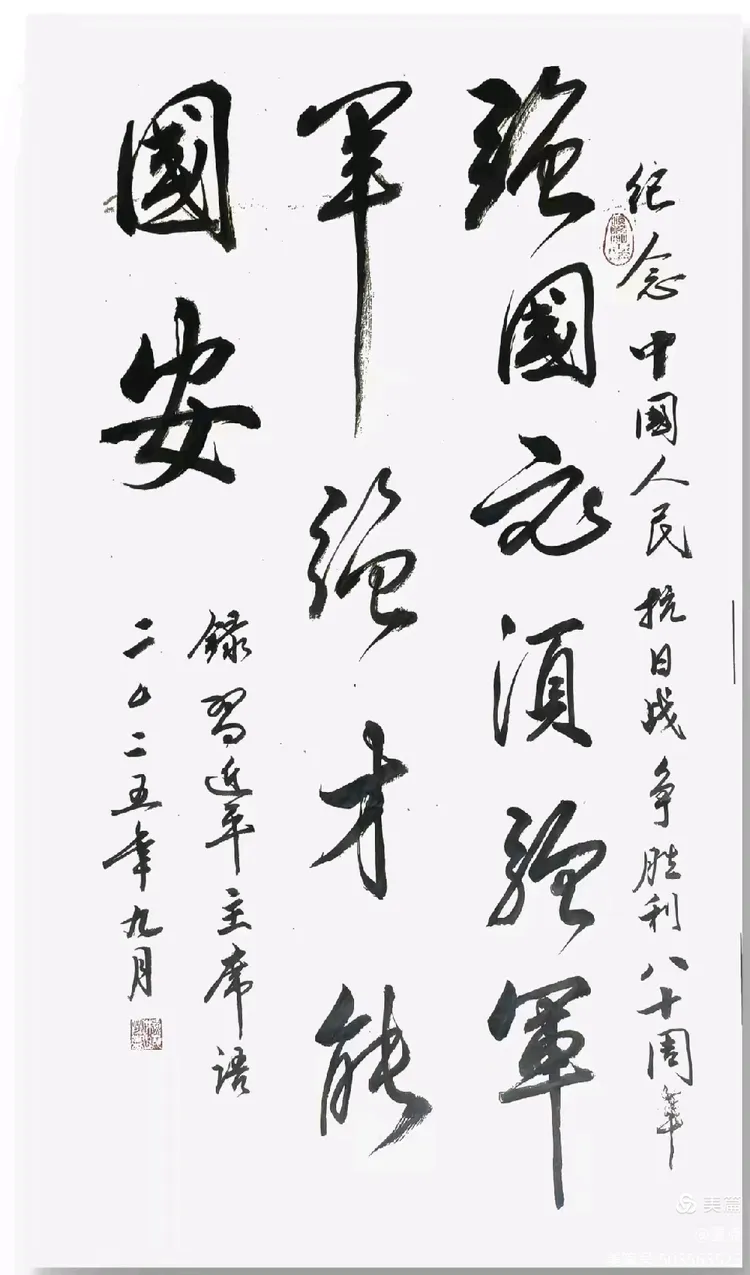 纪念中國人民抗日战争胜利八十周年
强國必须强軍
军强才能
國安
録習近平主席语
二〇二五年九月
美篇